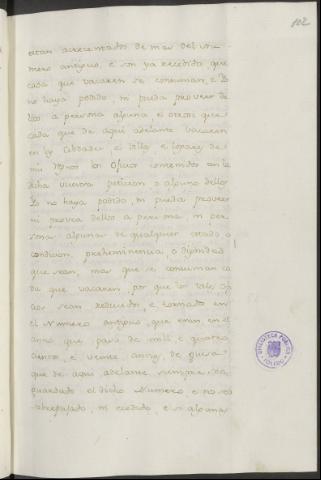 102
estan acrecentados de mas del nu-
mero antiguo, e son ya excedido que
cada que vacaren se consuman, e Yo
no haya podido, ni pueda proveer de
ellos a persona alguna e otrosi que
cada que de aqui adelante vacaren
en las Cibdades e Villas e Lugares de
mis Reynos los Oficios contenidos en la
dicha vuestra peticion o alguno dellos
Yo no haya podido, ni pueda proveer
ni provea dellos a persona, ni per-
sona alguna de qualquier estado o
condicion, preheminencia, o dignidad
que sean, mas que se consuman ca-
da que vacaren, por que los tales ofi-
cios sean reducidos, e tornados en
el Numero antiguo, que eran en el
año que pasó de mill, e quatro
cientos, e veinte años, de guisa
que de aqui adelante siempre sea
guardado el dicho Numero e no sea
traspasado, ni excedido, e si alguna
BIBLIOTECA PUBLICA
TOLEDO